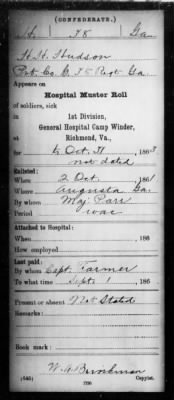 (CONFEDERATE.)
H. 38 Ga
H. H. Hudson
Pvt. Co. G, 38 Regt. Ga.
Appears on
Hospital Muster Roll
of soldiers, sick
in 1st Division,
General Hospital Camp Winder,
at Richmond, Va.,
for to Oct. 31, 1863
not dated
Enlisted:
When 2 Oct. 1861
Where Augusta Ga.
By whom Maj. Parr
Period war
Attached to Hospital:
When 186
How employed
Last paid:
By whom Capt. Farmer
To what time Sept. 1, 186
Present or absent Not Stated
Remarks:
Book mark:
(545)
Copyist.